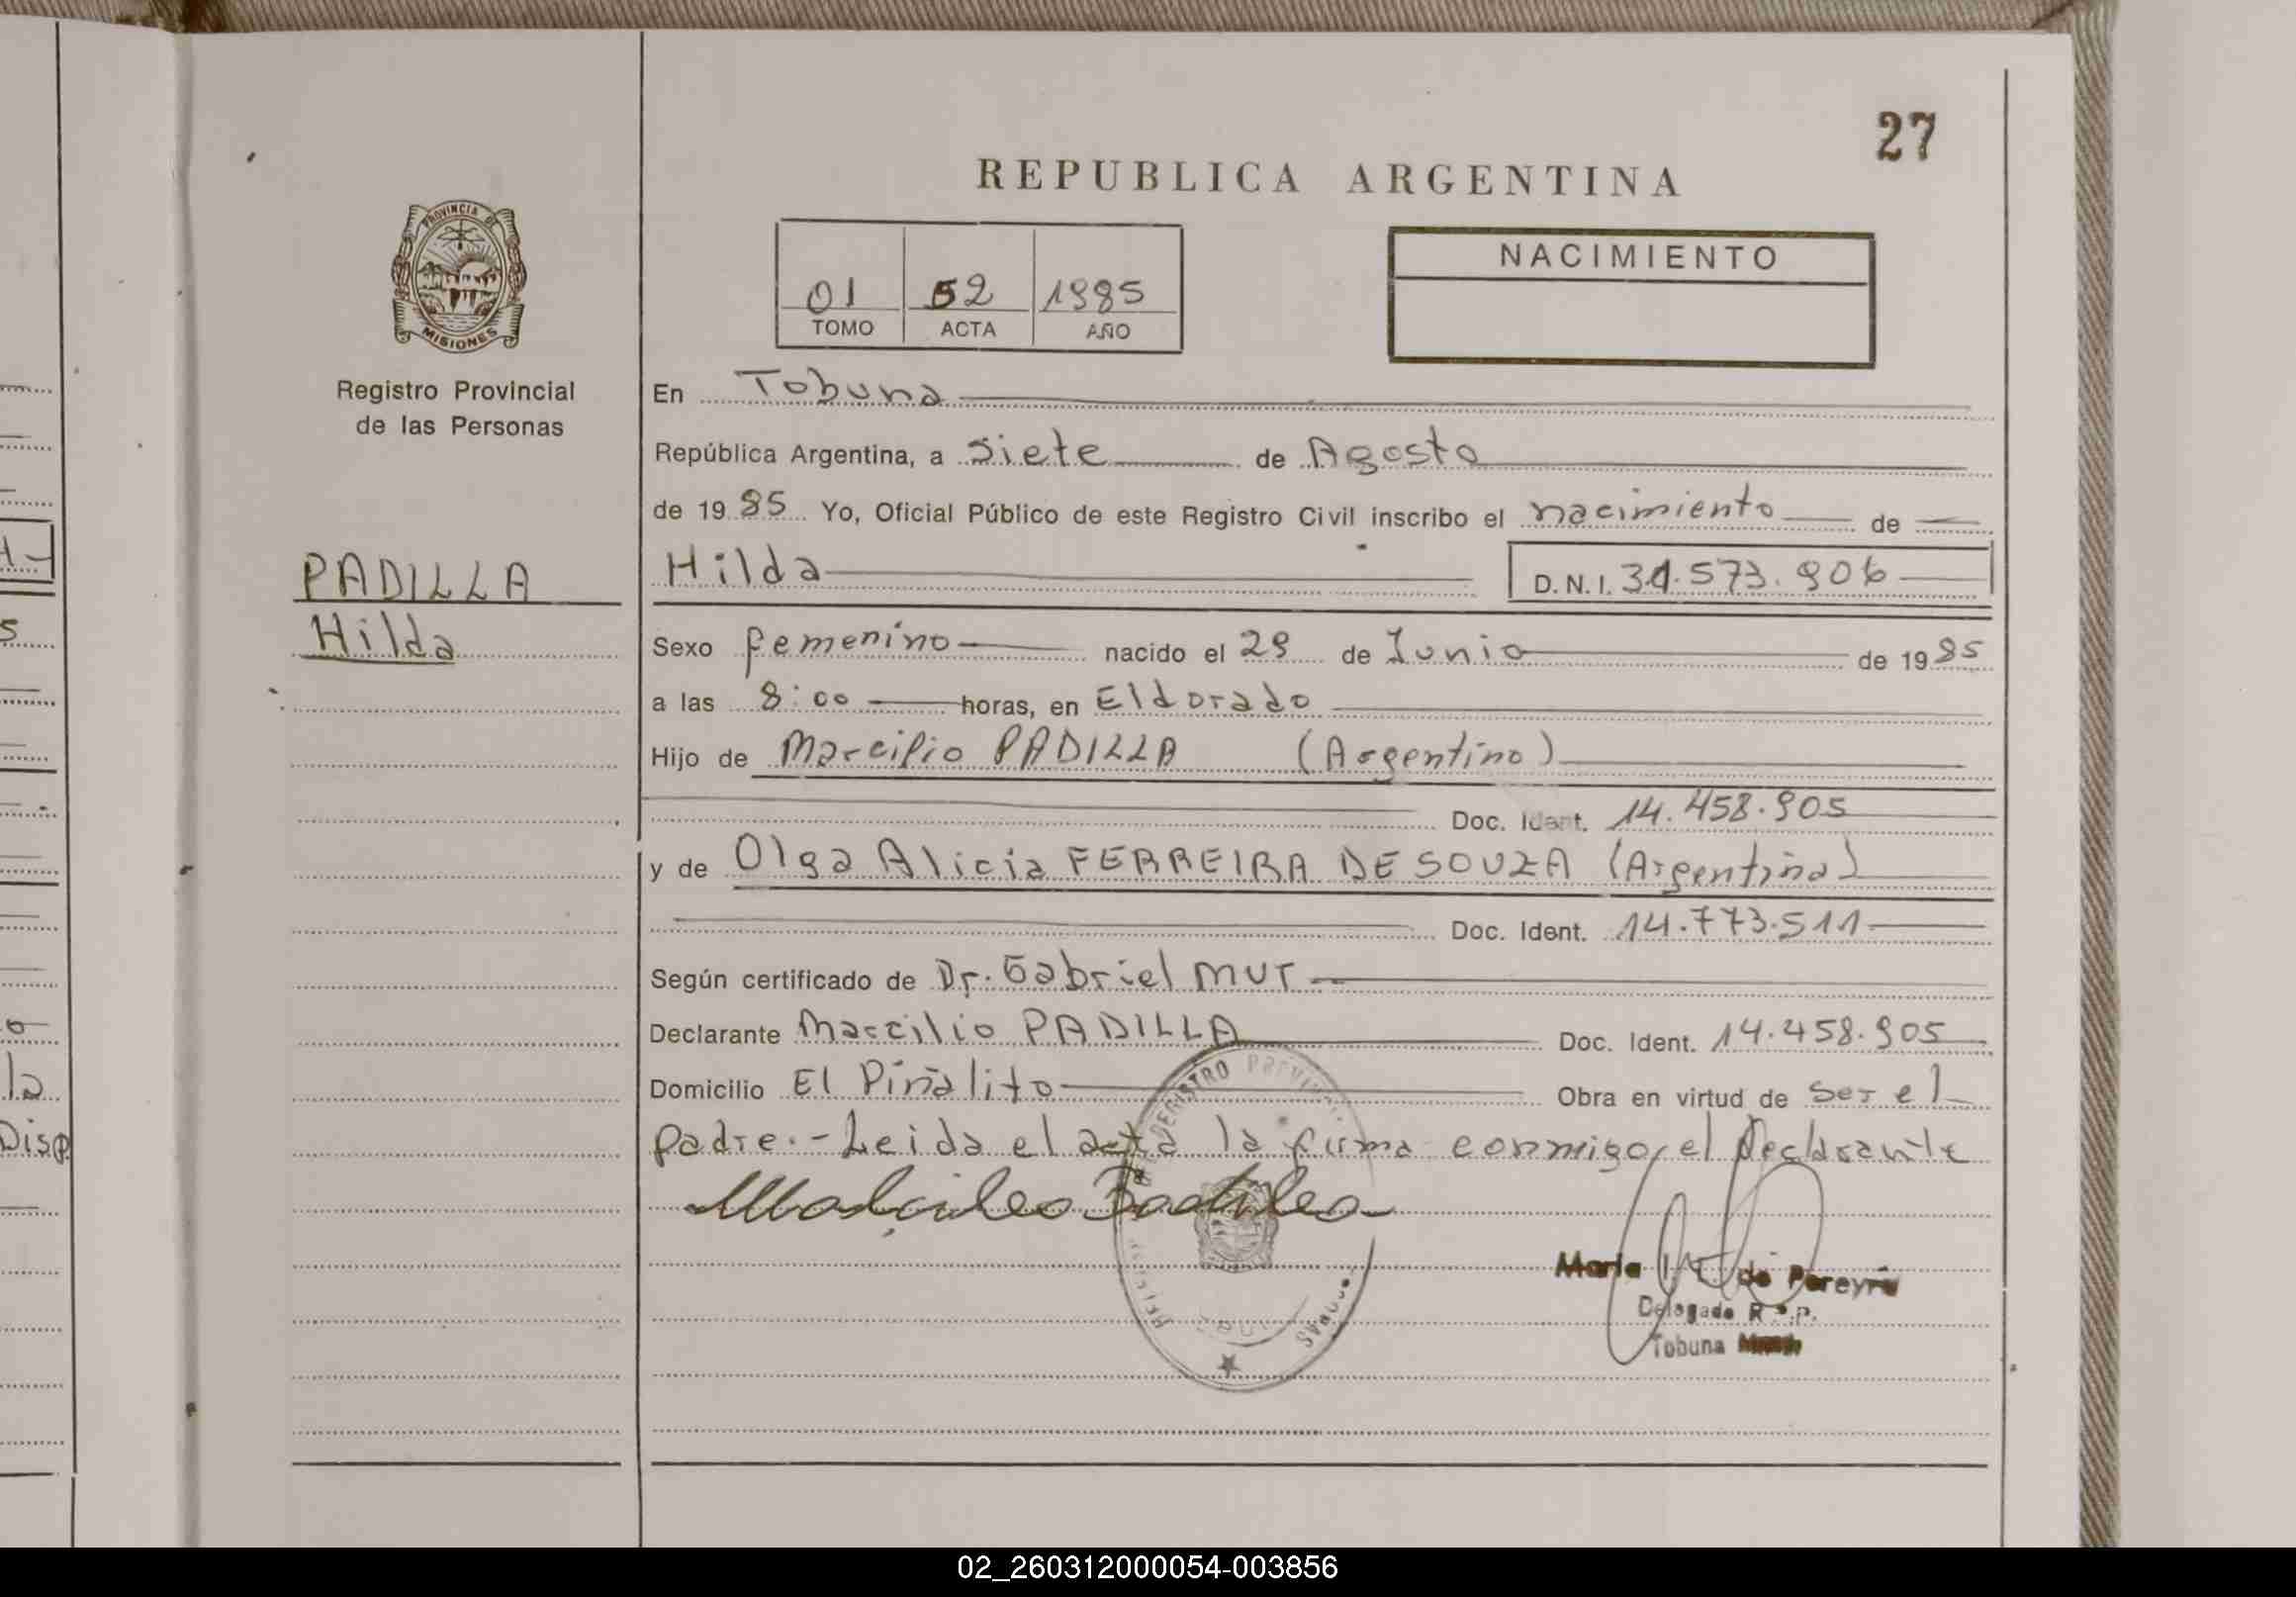 27
REPUBLICA ARGENTINA
PROVINCIA DE
MISIONES
NACIMIENTO
01 52 1985
TOMO ACTA AÑO
Registro Provincial
de las Personas
En Tobuna
República Argentina, a Siete de Agosto
de 1985 Yo, Oficial Público de este Registro Civil inscribo el nacimiento de
PADILLA
Hilda
Hilda D.N.I. 31.573.906
Sexo femenino nacido el 29 de Junio de 1985
a las 8:00 horas, en Eldorado
Hijo de Marcilio PADILLA (Argentino)
Doc. Ident. 14.458.905
y de Olga Alicia FERREIRA DE SOUZA (Argentina)
Doc. Ident. 14.773.511
Según certificado de Dr. Gabriel MUT
Declarante Marcilio PADILLA Doc. Ident. 14.458.905
Domicilio El Piñalito Obra en virtud de ser el
padre.- Leida el acta la firma conmigo, el Declarante
Marcilio Padilla
REGISTRO PROVINCIAL
María de Pereyra
Delegada R.P.
Tobuna
la
Disp
02_260312000054-003856